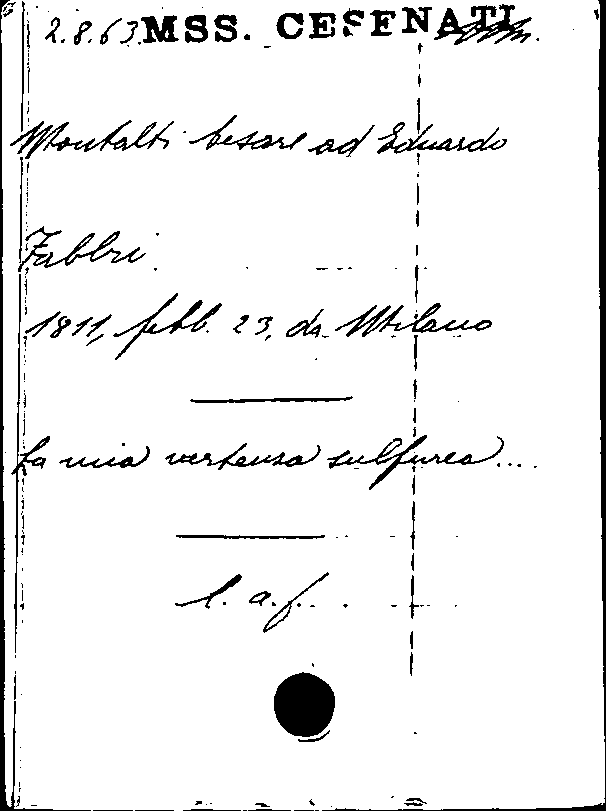 2.8.63. MSS. CESENATI
Montalti Cesare ad Eduardo
Fabbri
1811, febb. 23, da Milano
La mia vertenza sulfurea....
l. a. f.